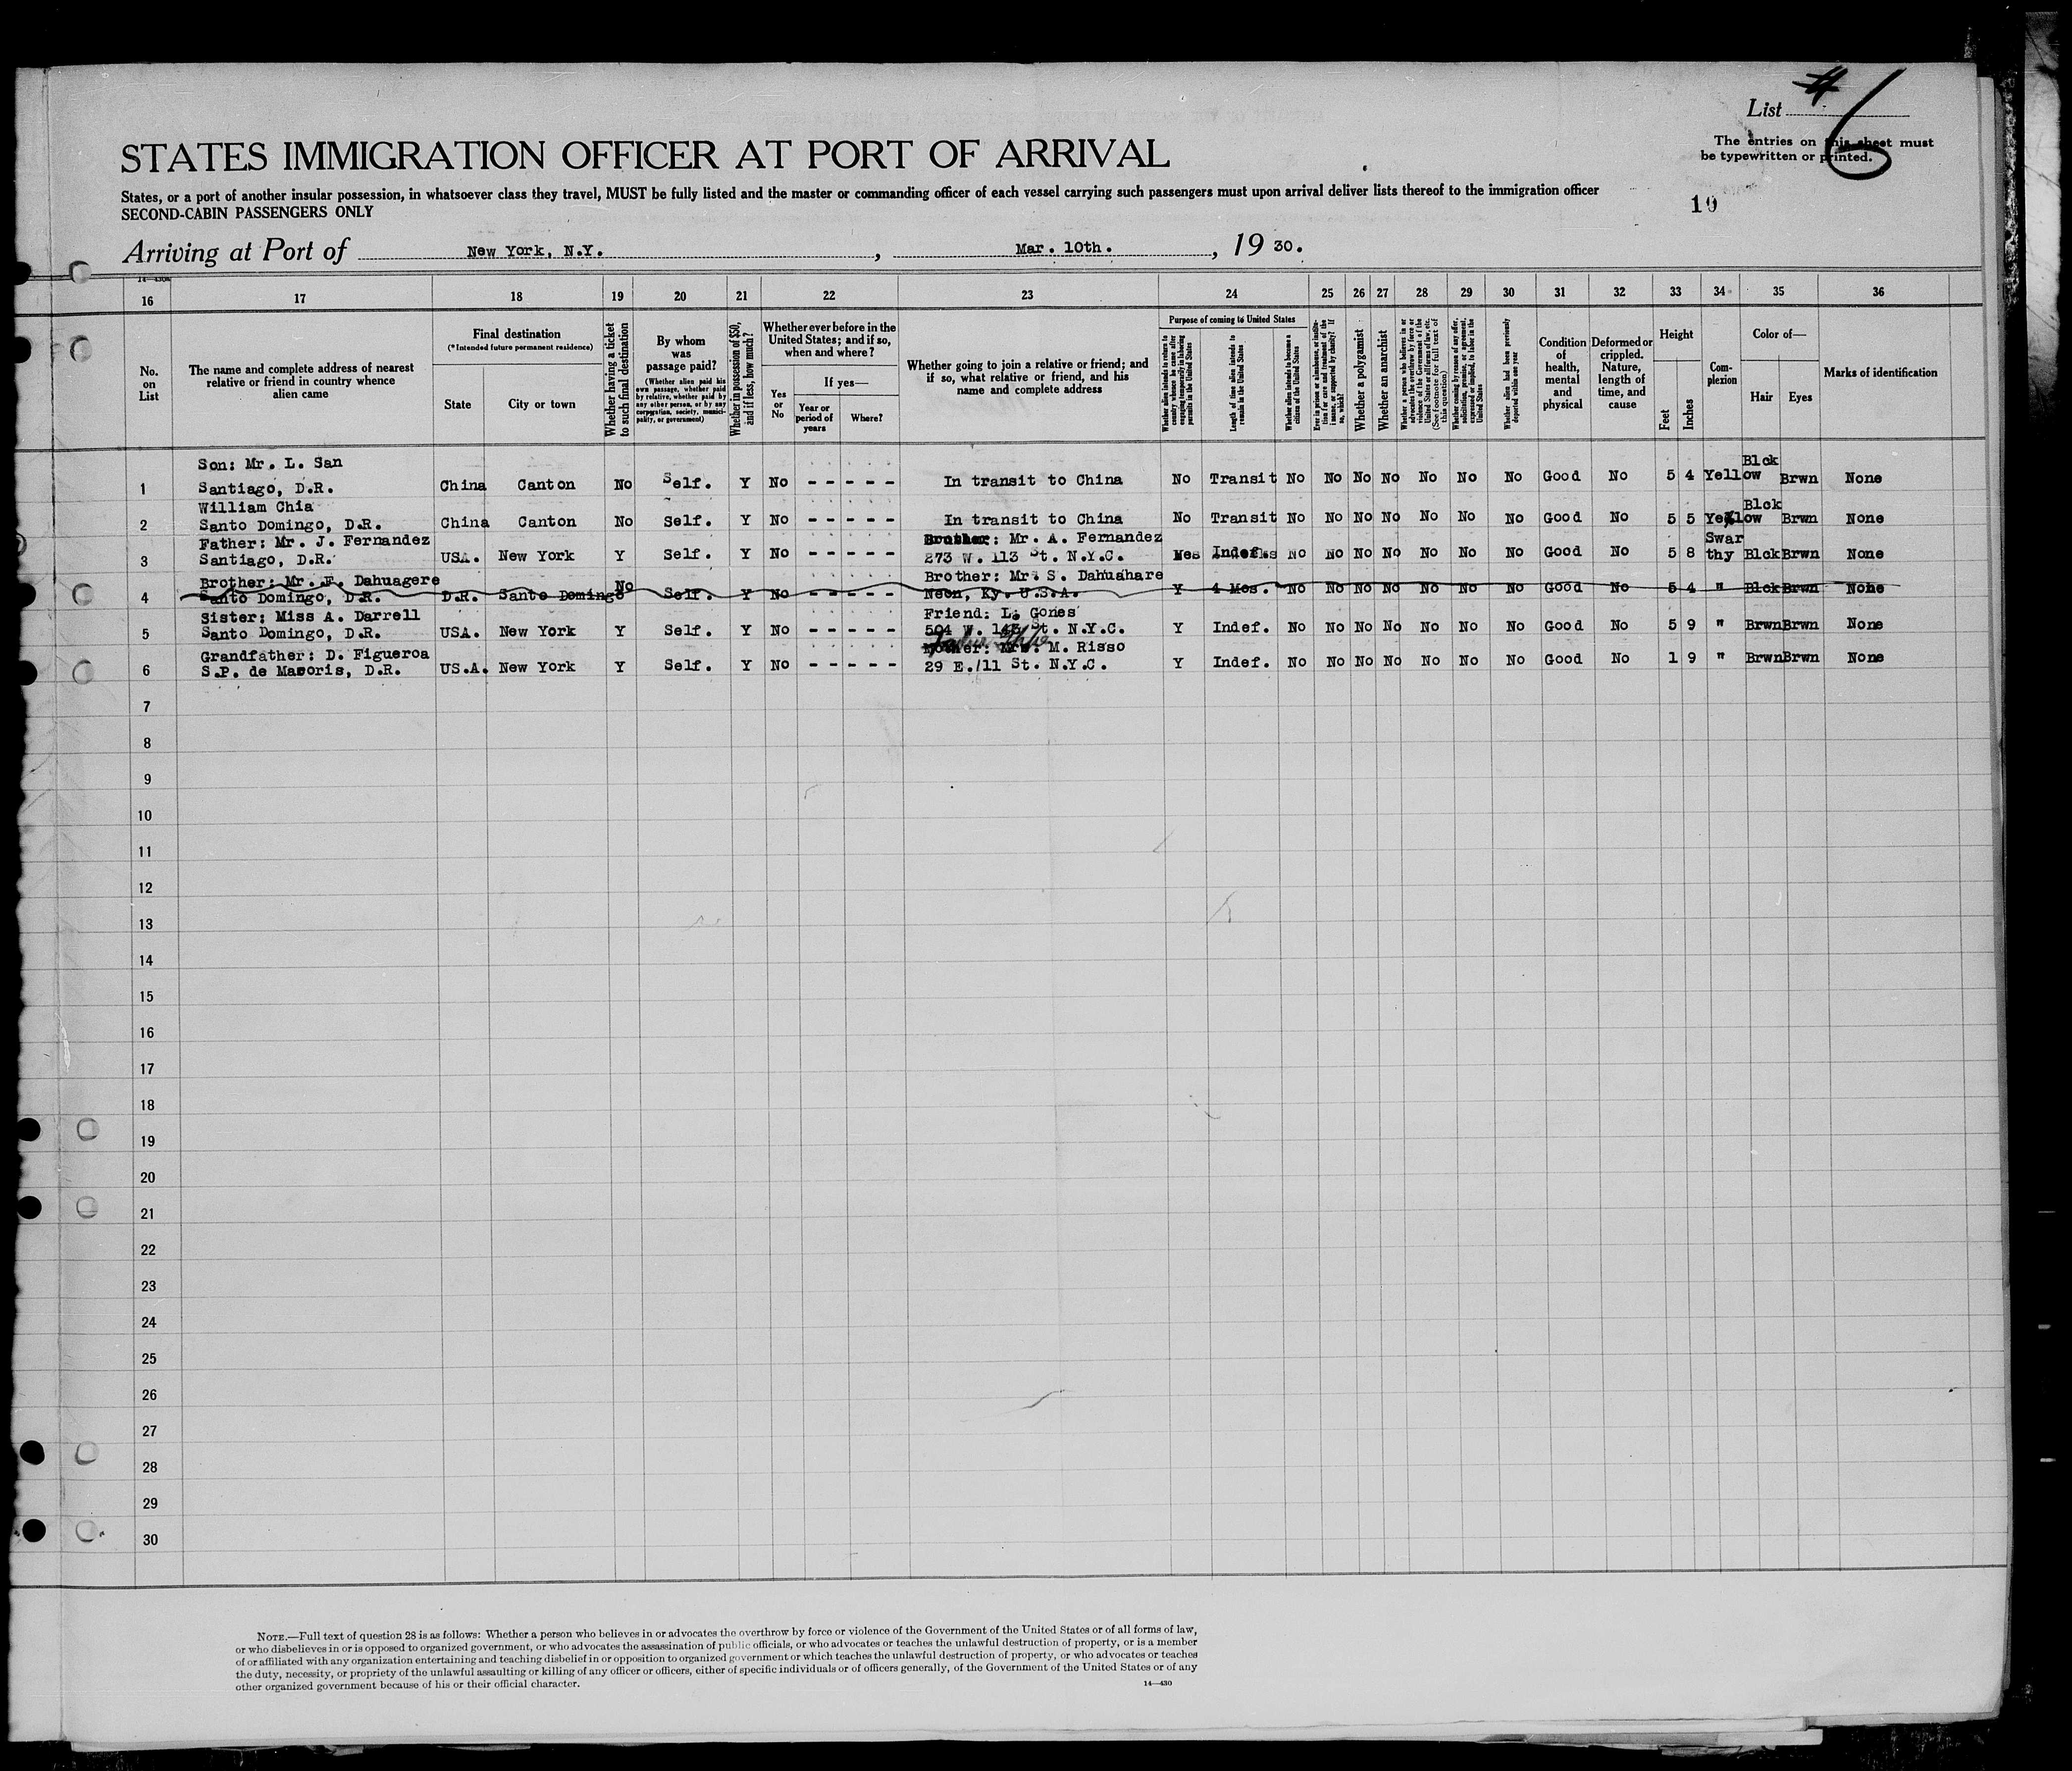 List #
The entries on this sheet must
be typewritten or printed.
STATES IMMIGRATION OFFICER AT PORT OF ARRIVAL
States, or a port of another insular possession, in whatsoever class they travel, MUST be fully listed and the master or commanding officer of each vessel carrying such passengers must upon arrival deliver lists thereof to the immigration officer
SECOND-CABIN PASSENGERS ONLY
10
Arriving at Port of New York, N.Y., Mar. 10th., 19 30.
16 17 18 19 20 21 22 23 24 25 26 27 28 29 30 31 32 33 34 35 36
No. on List
The name and complete address of nearest
relative or friend in country whence
alien came
Final destination
(*Intended future permanent residence)
State
City or town
Whether having a ticket
to such final destination
By whom
was
passage paid?
(Whether alien paid his
own passage, whether paid
by relative, whether paid by
any other person, or by any
corporation, society, munici-
pality, or government)
Whether in possession of $50,
and if less, how much?
Whether ever before in the
United States; and if so,
when and where?
Yes
or
No
If yes—
Year or
period of
years
Where?
Whether going to join a relative or friend; and
if so, what relative or friend, and his
name and complete address
Purpose of coming to United States
Whether alien intends to return to
country whence he came after
engaging temporarily in laboring
pursuits in the United States
Length of time alien intends to
remain in the United States
Whether alien intends to become a
citizen of the United States
Whether a polygamist
Whether an anarchist
(See footnote for full text of
this question)
Whether alien had been previously
deported within one year
Condition
of
health,
mental
and
physical
Deformed or
crippled.
Nature,
length of
time, and
cause
Height
Feet
Inches
Com-
plexion
Color of—
Hair
Eyes
Marks of identification
Son: Mr. L. San Blck
1 Santiago, D.R. China Canton No Self. Y No - - - - - In transit to China No Transit No No No No No No No Good No 5 4 Yellow Brwn None
William Chia Blck
2 Santo Domingo, D.R. China Canton No Self. Y No - - - - - In transit to China No Transit No No No No No No No Good No 5 5 Yellow Brwn None
Father: Mr. J. Fernandez Brother: Mr. A. Fernandez Swar
3 Santiago, D.R. USA. New York Y Self. Y No - - - - - 273 W. 113 St. N.Y.C. Indef. No No No No No No No Good No 5 8 thy Blck Brwn None
Brother: Mr. F. Dahuagere No Brother: Mr. S. Dahuahare
4 Santo Domingo, D.R. D.R. Santo Domingo Self. Y No - - - - - Neon, Ky. U.S.A. Y 4 Mos. No No No No No No No Good No 5 4 " Blck Brwn None
Sister: Miss A. Darrell Friend: L. Gones
5 Santo Domingo, D.R. USA. New York Y Self. Y No - - - - - 504 W. 143 St. N.Y.C. Y Indef. No No No No No No No Good No 5 9 " Brwn Brwn None
Grandfather: D. Figueroa Mother: Mrs. M. Risso
6 S.P. de Macoris, D.R. US.A. New York Y Self. Y No - - - - - 29 E./11 St. N.Y.C. Y Indef. No No No No No No No Good No 1 9 " Brwn Brwn None
7
8
9
10
11
12
13
14
15
16
17
18
19
20
21
22
23
24
25
26
27
28
29
30
NOTE.—Full text of question 28 is as follows: Whether a person who believes in or advocates the overthrow by force or violence of the Government of the United States or of all forms of law,
or who disbelieves in or is opposed to organized government, or who advocates the assassination of public officials, or who advocates or teaches the unlawful destruction of property, or is a member
of or affiliated with any organization entertaining and teaching disbelief in or opposition to organized government or which teaches the unlawful destruction of property, or who advocates or teaches
the duty, necessity, or propriety of the unlawful assaulting or killing of any officer or officers, either of specific individuals or of officers generally, of the Government of the United States or of any
other organized government because of his or their official character.
14—430